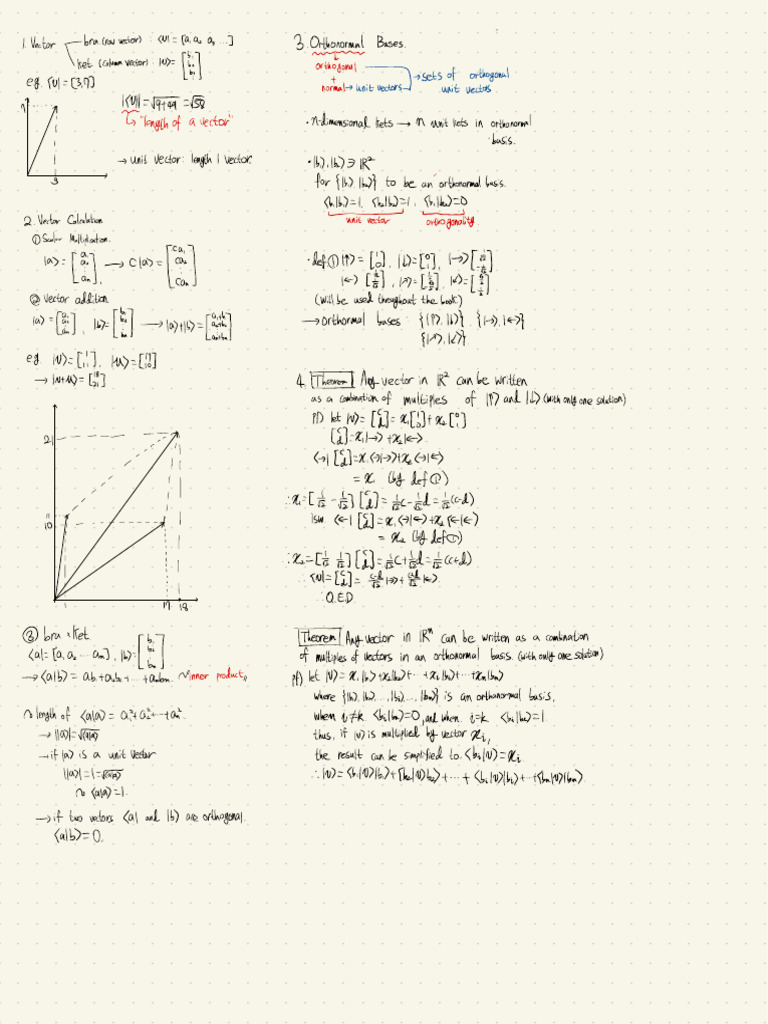 1. Vector
bra (row vector) : ⟨v| = [a₁ a₂ a₃ ...]
ket (column vector) : |v⟩ = [b₁ b₂ b₃]
eg. ⟨v| = [3,7]
7
3
|⟨v|| = √9+49 = √58
↳ "length of a vector"
→ unit vector: length 1 vector
2. Vector Calculation
① Scalar Multiplication
|a⟩ = [a₁ a₂ ⋮ aₙ], → C|a⟩ = [Ca₁ Ca₂ ⋮ Caₙ]
② Vector addition
|a⟩ = [a₁ a₂ ⋮ aₙ], |b⟩ = [b₁ b₂ ⋮ bₙ] → |a⟩+|b⟩ = [a₁+b₁ a₂+b₂ ⋮ aₙ+bₙ]
eg |v⟩ = [1 11], |u⟩ = [17 10]
→ |v+u⟩ = [18 21]
21
11
10
1
17 18
③ bra × ket
⟨a| = [a₁ a₂ ... aₙ], |b⟩ = [b₁ b₂ ⋮ bₙ]
→ ⟨a|b⟩ = a₁b₁ + a₂b₂ + ... + aₙbₙ. ~ inner product
~ length of ⟨a|a⟩ = a₁²+a₂²+...+aₙ².
→ ||a⟩| = √⟨a|a⟩
→ if |a⟩ is a unit vector
||a⟩| = 1 = √⟨a|a⟩
~ ⟨a|a⟩ = 1.
→ if two vectors ⟨a| and |b⟩ are orthogonal.
⟨a|b⟩ = 0.
3. Orthonormal Bases.
orthogonal
+
normal → unit vectors
→ sets of orthogonal
unit vectors.
• n-dimensional kets → n unit kets in orthonormal
basis.
• |b₁⟩, |b₂⟩ ∋ ℝ²
for {|b₁⟩, |b₂⟩} to be an orthonormal basis.
⟨b₁|b₁⟩=1, ⟨b₂|b₂⟩=1, ⟨b₁|b₂⟩=0
unit vector
orthogonality
• def ① |↑⟩ = [1 0], |↓⟩ = [0 1], |→⟩ = [1/√2 -1/√2]
|←⟩ = [1/√2 1/√2], |↗⟩ = [1/2 -√3/2], |↙⟩ = [√3/2 1/2]
(will be used throughout the book)
→ orthormal bases {|↑⟩,|↓⟩}, {|→⟩,|←⟩}
{|↗⟩,|↙⟩}
4. Theorem Any vector in ℝ² can be written
as a combination of multiples of |↑⟩ and |↓⟩ (with only one solution)
pf) let |v⟩ = [c d] = x₁[1 0] + x₂[0 1]
[c d] = x₁|→⟩ + x₂|←⟩
⟨→|[c d] = x₁⟨→|→⟩ + x₂⟨→|←⟩
= x₁ (by def ①)
∴ x₁ = [1/√2 -1/√2][c d] = 1/√2 c - 1/√2 d = 1/√2 (c-d)
isw ⟨←|[c d] = x₁⟨→|←⟩ + x₂⟨←|←⟩
= x₂ (by def ①)
∴ x₂ = [1/√2 1/√2][c d] = 1/√2 c + 1/√2 d = 1/√2 (c+d)
∴ ⟨v| = [c d] = c-d/√2 |→⟩ + c+d/√2 |←⟩
∴ Q.E.D.
Theorem Any vector in ℝⁿ can be written as a combination
of multiples of vectors in an orthonormal basis. (with only one solution)
pf) let |v⟩ = x₁|b₁⟩ + x₂|b₂⟩ + ... + xᵢ|bᵢ⟩ + ... + xₙ|bₙ⟩
where {|b₁⟩, |b₂⟩, ..., |bᵢ⟩, ..., |bₙ⟩} is an orthonormal basis,
when i≠k. ⟨bᵢ|bₖ⟩=0, and when i=k. ⟨bᵢ|bₖ⟩=1.
thus, if |v⟩ is multiplied by vector xᵢ,
the result can be simplified to. ⟨bᵢ|v⟩ = xᵢ
∴ |v⟩ = ⟨b₁|v⟩|b₁⟩ + ⟨b₂|v⟩|b₂⟩ + ... + ⟨bᵢ|v⟩|bᵢ⟩ + ... + ⟨bₙ|v⟩|bₙ⟩